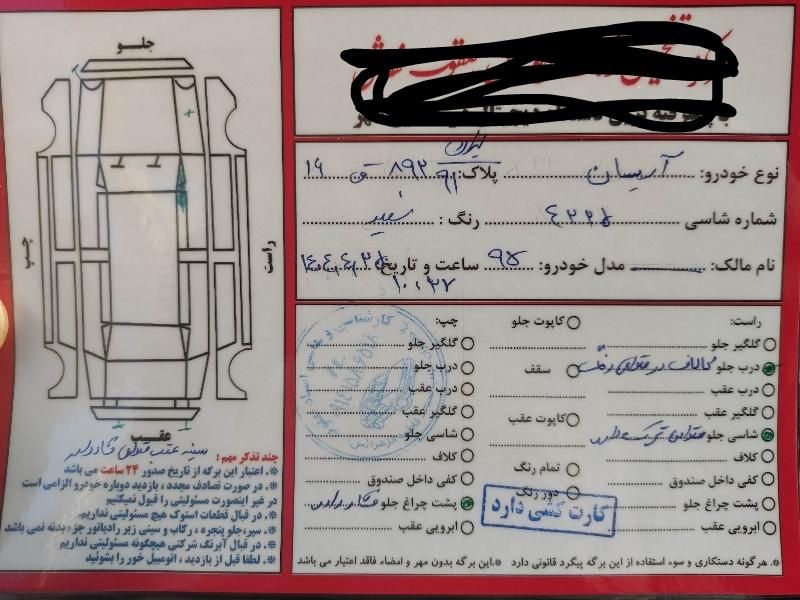 جلو
چپ
راست
عقب
سینه عقب فشار دارد
چند تذکر مهم :
*. اعتبار این برگه از تاریخ صدور ۲۴ ساعت می باشد
*. در صورت تصادف مجدد ، بازدید دوباره خودرو الزامی است
در غیر اینصورت مسئولیتی را قبول نمیکنیم
*. در قبال قطعات استوک هیچ مسئولیتی نداریم
*. سپر،جلو پنجره ، رکاب و سینی زیر رادیاتور جزء بدنه نمی باشد
*. در قبال آبرنگ شرکتی هیچگونه مسئولیتی نداریم
*. لطفا قبل از بازدید ، اتومبیل خور را بشوئید
نوع خودرو: آریسان پلاک: ایران ۹۱ ۸۹۲ ق ۱۴
شماره شاسی ۴۲۲۵ رنگ : سفید
نام مالک: مدل خودرو: ۹۵ ساعت و تاریخ
۱۰:۳۷
راست:
گلگیر جلو
درب جلو
درب عقب
گلگیر عقب
شاسی جلو
کلاف
کفی داخل صندوق
پشت چراغ جلو
ابرویی عقب
کاپوت جلو
سقف
کاپوت عقب
تمام رنگ
دور رنگ
کارت کتبی دارد
چپ:
گلگیر جلو
درب جلو
درب عقب
گلگیر عقب
شاسی جلو
کلاف
کفی داخل صندوق
پشت چراغ جلو فشار دارد
ابرویی عقب
*. هرگونه دستکاری و سوء استفاده از این برگه پیگرد قانونی دارد *.این برگه بدون مهر و امضاء فاقد اعتبار می باشد